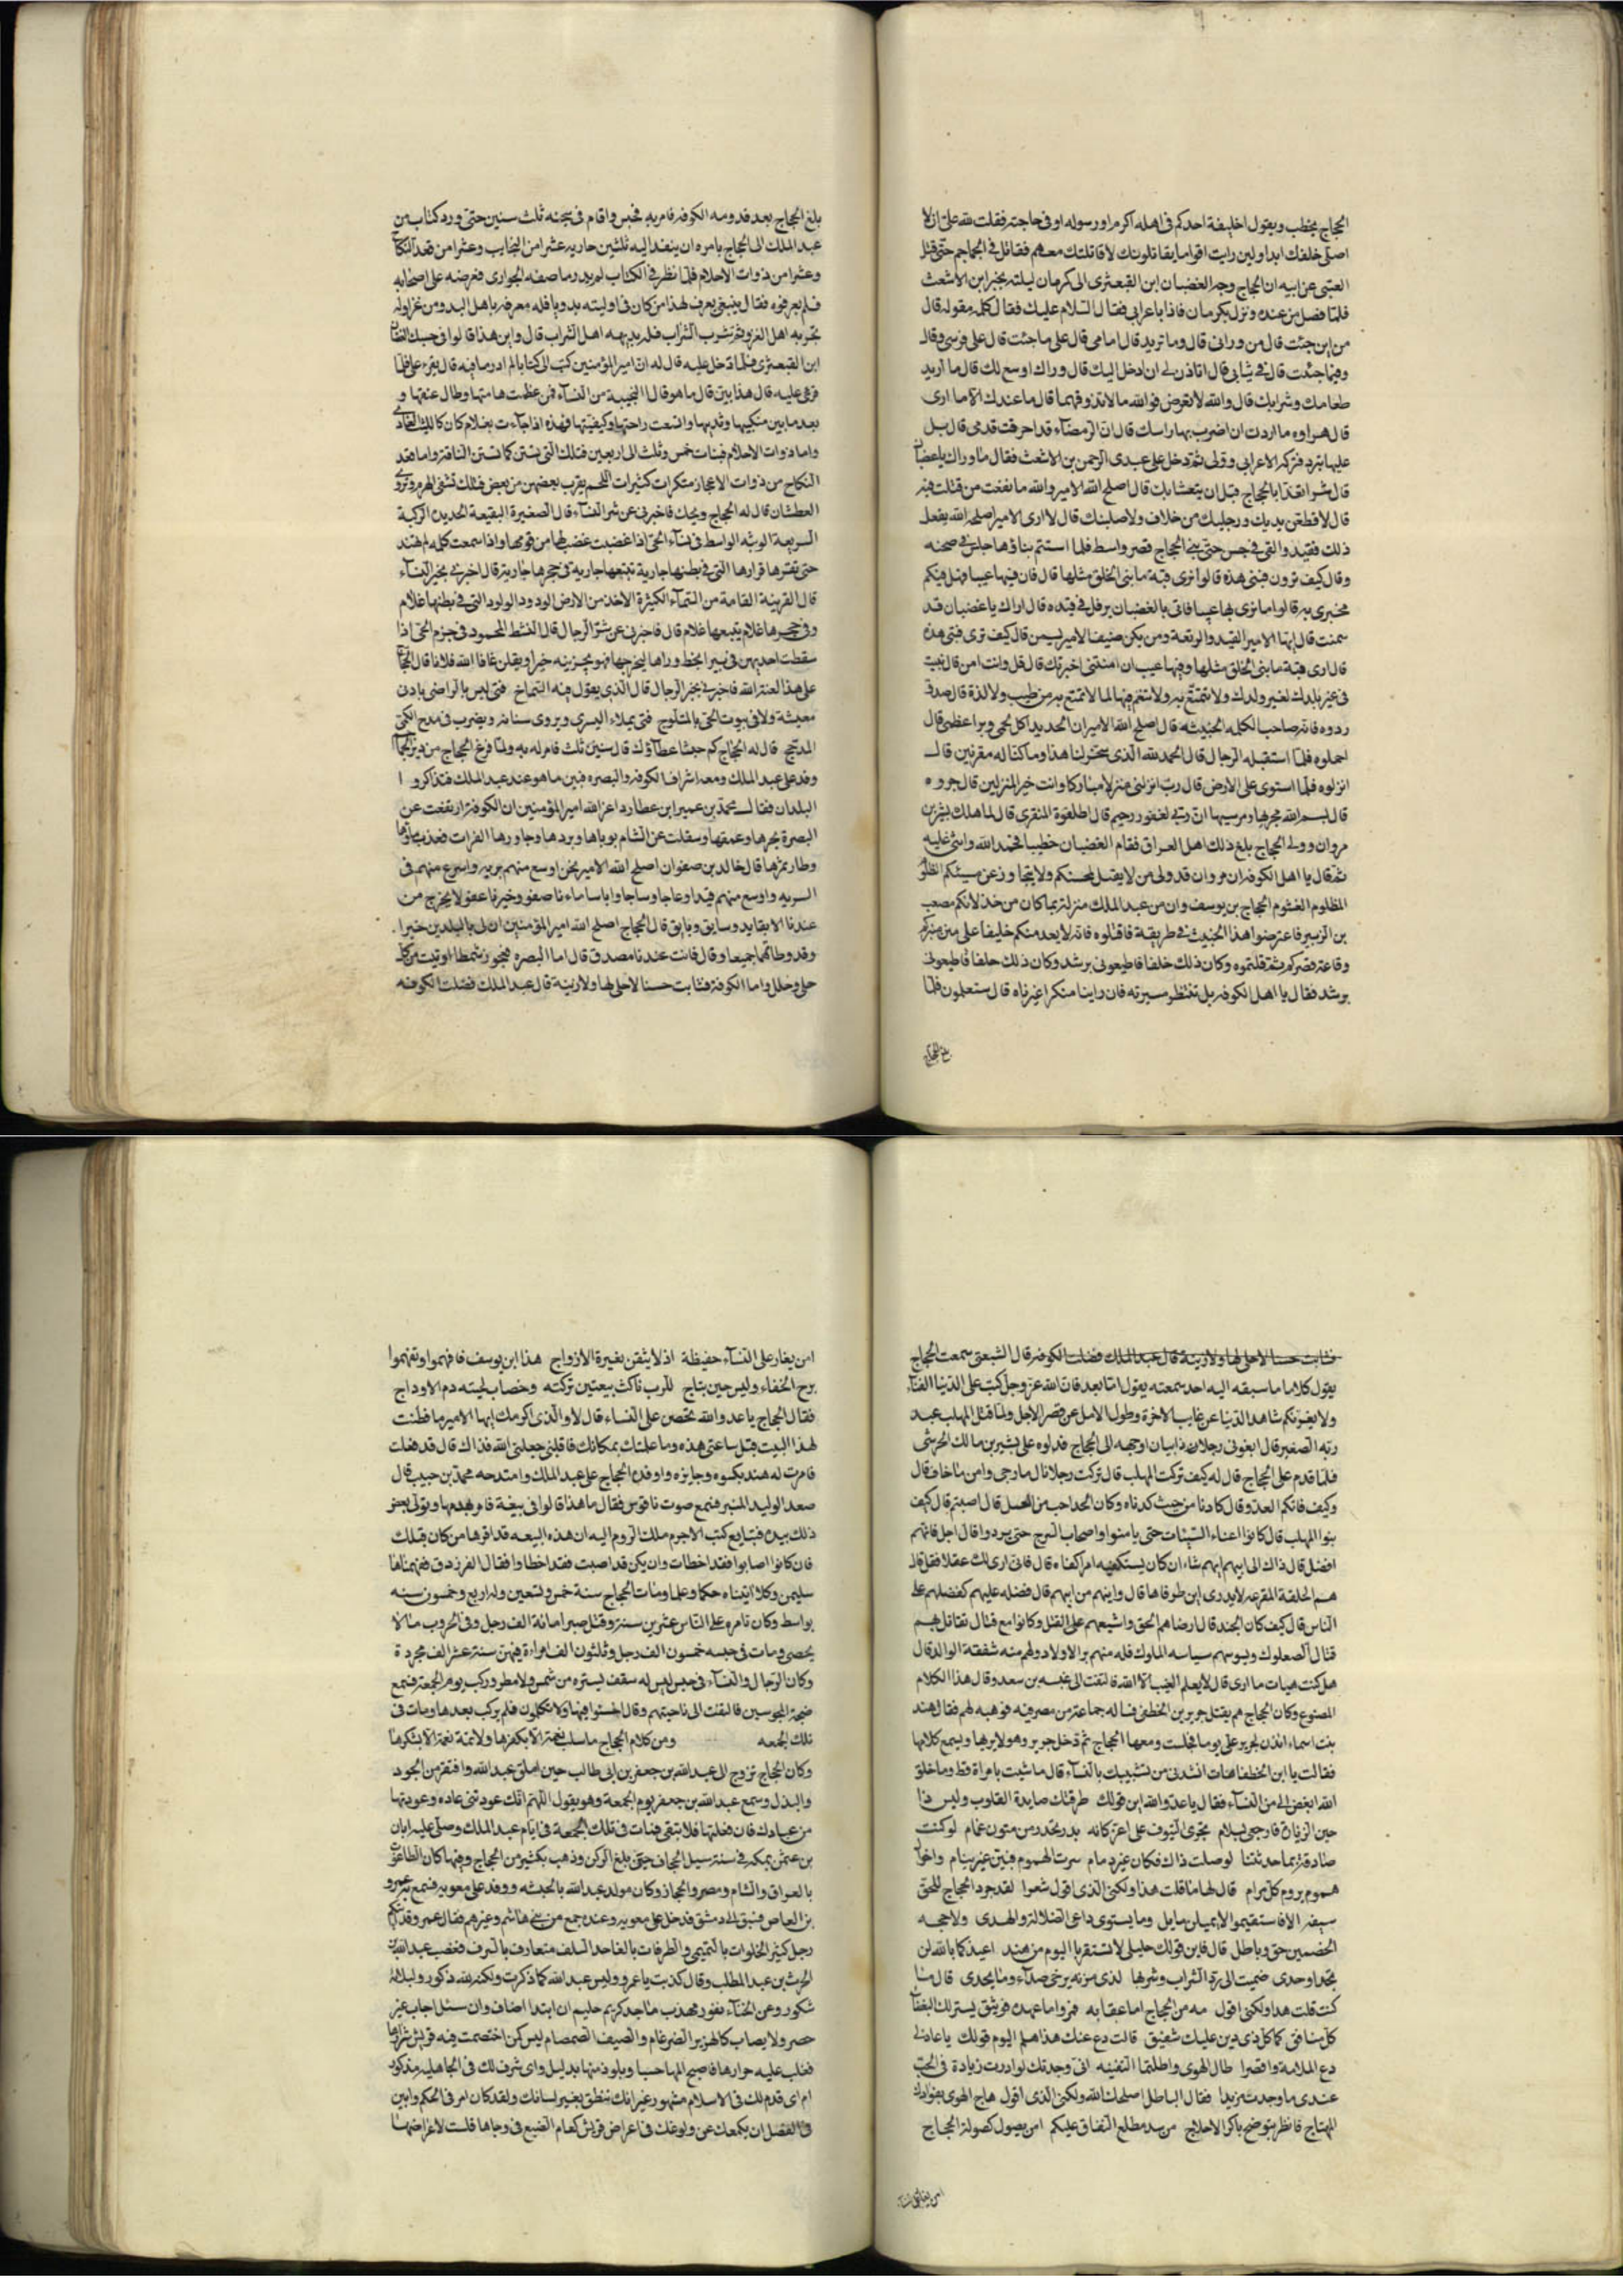 الحجاج يخطب ويقول اخليفة احدكم في اهله اكرم او رسوله او في حاجته فقلت لله علي ان لا
اصلي خلفك ابدا ولين رايت اقواما يقاتلونك لاقاتلنك معهم فقاتل في الجماجم حتى قتل
العتبى عن ابيه ان الحجاج وجه الغضبان ابن القبعثرى الى كرمان ليلته بخبر ابن الاشعث
فلما فصل من عنده ونزل بكرمان فاذا باعرابي فقال السلام عليك فقال كلمه مقوله قال
من اين جئت قال من وراي قال وما تريد قال امامي قال على ما جئت قال على فرسي وقال
وفيما جئت قال في ثيابي قال اتاذن لي ان ادخل اليك قال وراك اوسع لك قال ما اريد
طعامك وشرابك قال والله لا تعرض فوالله ما لا تذوقهما قال ما عندك الا ما ارى
قال هراوه ما اردت ان اضرب بها راسك قال ان الرمضاء قد احرقت قدمي قال بل
عليها تبرد فتركه الاعرابي وولى ثم دخل على عبدى الرحمن بن الاشعث فقال ما وراك يا غضبان
قال شر ابتغدا بالحجاج قبل ان يتعشا بك قال اصلح الله الامير والله ما نفعت من قتلت فيه
قال لاقطعن يديك ورجليك من خلاف ولاصلبنك قال لا ارى الامير اصلحه الله يفعل
ذلك فقيد والقي في حبس حتى بنى الحجاج قصر واسط فلما استتم بناؤها جلس في صحنه
وقال كيف ترون قبتي هذه قالوا نرى قبة ما بني الخلق مثلها قال فان فيها عيبا فهل فيكم
مخبري به قالوا ما نرى بها عيبا فاتي بالغضبان يرفل في قيده قال اراك يا غضبان قد
سمنت قال ايها الامير القيد والرتعة ومن يكن ضيف الامير يسمن قال كيف ترى قبتي هذه
قال ارى قبة ما بني الخلق مثلها وفيها عيب ان امنتني اخبرتك قال قل وانت امن قال بنيت
في غير بلدك لغير ولدك ولا تتمتع به ولا تنعم فيها لما لا تمتع به من طيب ولا لذة قال صدق
ردوه فانه صاحب الكلمه الخبيثه قال اصلح الله الامير ان الحديد اكل لحمي وبرا عظمي قال
احملوه فلما استقبله الرجال قال الحمد لله الذي سخر لنا هذا وما كنا له مقرنين قال
انزلوه فلما استوى على الارض قال رب انزلني منزلا مباركا وانت خير المنزلين قال جروه
قال بسم الله مجريها ومرسيها ان ربي لغفور رحيم قال اطلقوه المنقري قال لما هلك بشر بن
مروان وولي الحجاج بلغ ذلك اهل العراق فقام الغضبان خطيبا فحمد الله واثنى عليه
ثم قال يا اهل الكوفه ان مروان قد ولى من لا يقبل لمحسنكم ولا يتجاوز عن مسيئكم الظلوم
المظلوم الغشوم الحجاج بن يوسف وان من عبد الملك منزلة بما كان من خذلانكم مصعب
بن الزبير فاعترضوا هذا الخبيث في طريقه فاقتلوه فانه لا يعد منكم خليفا على متن منبركم
وقاعة قصركم ثم قتلتموه وكان ذلك خلفا فاطيعوني برشد وكان ذلك خلفا فاطيعوني
برشد فقال يا اهل الكوفه بل ننتظر سيرته فان راينا منكرا غيرناه قال ستعلمون فلما
بلغ الحجاج
بلغ الحجاج بعد قدومه الكوفه فامر به فحبس واقام في سجنه ثلث سنين حتى ورد كتاب من
عبد الملك الى الحجاج يامره ان ينفد اليه ثلثين جاريه عشرا من النجايب وعشرا من قعد النكاح
وعشرا من ذوات الاحلام فلما نظر في الكتاب لم يدر ما صفه الجوارى فعرضه على اصحابه
فلم يعرفوه فقال ينبغي يعرف لهذا من كان في اوليته بدويا فله معرفه باهل البدو من غزا وله
تجربه اهل الغزو ثم شرب الشراب فله بديهه اهل الشراب قال واين هذا قالوا في حبسك الغضبان
ابن القبعثرى فلما دخل عليه قال له ان امير المؤمنين كتب الي كتابا لم ادر ما فيه قال يقرء علي فلما
قرئ عليه قال هذا بين قال ما هو قال النجيبة من النساء فمن عظمت هامتها وطال عنقها و
بعد ما بين منكبيها وثدييها واتسعت راحتها وركبتيها فهذه اذا جاءت بغلام كان كالليث العادي
واما ذوات الاحلام فبنات خمس وثلث الى اربعين فتلك التي تستن كما تستن الناقة واما قعد
النكاح من ذوات الاعجاز متكرات كثيرات اللحم يقرب بعضهن من بعض فتلك تشفي القرم وتروي
العطشان قال له الحجاج ويحك فاخبرني عن شر النساء قال الصغيرة البقيعة الحديدة الركبة
السريعة الوثبه الواسط في نساء الحي اذا غضبت غضب لها من قومها واذا سمعت كلمه لم تهند
حتى تقرها قرارها التي في بطنها جارية تتبعها جارية في حجرها جارية قال اخبرني بخير النساء
قال القريبة القامة من السماء الكثيرة الاخذ من الارض الودود الولود التي في بطنها غلام
وفي حجرها غلام يتبعها غلام قال فاخبرني عن شر الرجال قال النشط المحمود في حزم الحي اذا
سقطت احديهن في بير انحط وراها ليخرجها فهو يجزينه خيرا ويقلن عافا الله فلانا قال الحجاج
على هذا لعنة الله فاخبرني بخير الرجال قال الذي يعول فيه الشماخ فتى ليس بالراضي بادنى
معيشة ولا في بيوت الحي بالمتولج فتى يملاء الشيزى ويروي سنامه ويضرب في مدح الكمى
المدجج قال له الحجاج كم حبسنا عطاؤك قال سنين ثلث فامر له به ولما فرغ الحجاج من دير الجماجم
وفد على عبد الملك ومعه اشراف الكوفه والبصره فبين ما هو عند عبد الملك فتذاكروا
البلدان فقال محمد بن عمير ابن عطارد اعز الله امير المؤمنين ان الكوفة ارتفعت عن
البصرة بحرها وعمقها وسفلت عن الشام بوباها وبردها وجاورها الفرات فعذب ماؤها
وطاب ثمرها قال خالد بن صفوان اصلح الله الامير نحن اوسع منهم بريه واسرع منهم في
السريه واوسع منهم قيدا وعاجا وساجا وانا ساما ماء ناصفو وخيرنا عفو لا يخرج من
عندنا الا بقايد وسايق وبايق قال الحجاج اصلح الله امير المؤمنين ان لي بالبلدين خبرا
وقد وطاتهما جميعا وقال فانت عندنا مصدق قال اما البصره فعجوز شمطا اوتيت من كل
حلي وحلل واما الكوفة فشابت حسنا لا حلي لها ولا زينة قال عبد الملك فضلت الكوفه
فشابت حسنا لا حلي لها ولا زينة قال عبد الملك فضلت الكوفه قال الشعبي سمعت الحجاج
يقول كلاما ما سبقه اليه احد سمعته يقول اما بعد فان الله عز وجل كتب على الدنيا الفناء
ولا يغرنكم شاهد الدنيا عن غايب الاخرة وطول الامل عن قصر الاجل ولما قتل المهلب عبد
ربه الصغير قال ابغوني رجلا ذا بيان اوجهه الى الحجاج فدلوه على بشير بن مالك الحرشى
فلما قدم على الحجاج قال له كيف تركت المهلب قال تركت رجلا نال ما رجى وامن ما خاف قال
وكيف فاتكم العدو قال كادنا من حيث كدناه وكان الحد احب من الفسل قال اصبتم قال كيف
بنو المهلب قال كانوا اعناء السيئات حتى يامنوا واصحاب السرج حتى يردوا قال اجل فايهم
افضل قال ذاك الى ابيهم ايهم شاء ان كان يستكفيه امرا كفاه قال فاني ارى لك عقلا فقل قال
هم الحلقة المفرغه لا يدرى اين طرفاها قال واينهم من ابيهم قال فضله عليهم كفضلهم على
الناس قال كيف كان الجند قال ارضاهم الحق واشبعهم على القتل وكانوا مع قتال نقاتل بهم
قتال الصعلوك ويسوسهم سياسه الملوك فله منهم بر الاولاد ولهم منه شفقة الوالد قال
هل كنت هيات ما ارى قال لا يعلم الغيب الا الله فالتفت الى عنبسه بن سعد وقال هذا الكلام
المصنوع وكان الحجاج هم بقتل جرير بن الخطفى فساله جماعة من مصر فيه فوهبه لهم فقال هند
بنت اسماء ائذن لجرير علي يوما فجلست ومعها الحجاج ثم دخل جرير وهو لا يريها ويسمع كلامها
فقالت يا ابن الخطفا هات انشدني من تشبيبك بالنساء قال ما شببت بامراة قط وما خلق
الله ابغض الي من النساء فقال يا عدو الله اين قولك طرقتك صايدة القلوب وليس ذا
حين الزيارة فارجعي بسلام تجرى السيوف على اغر كانه بدر تحدر من متون غمام لو كنت
صادقة بما حدثتنا لوصلت ذاك فكان غير رمام سرت الهموم فبتن غير نيام واخو
هموم يروم كل مرام قال لها ما قلت هذا ولكني الذي اقول شعرا لقد جرد الحجاج للحق
سيفه الا فاستقيموا لا يميلن مايل وما يستوي داعي الضلالة والهدى ولا حجه
الخصمين حق وباطل قال فاين قولك خليلي لا تستقربا اليوم من هند اعيذكما بالله لن
تجدا وحدي ضميت الى برد الشراب وشربها لدى مزنه يرخى صداء وما يحدى قال ما
كنت قلت هدا ولكني اقول مه من الحجاج اما عقابه فمر واما عهده فوثيق يسر لك البغضاء
كل منافق كما كل ذي دين عليك شفيق قالت دع عنك هذا هلم اليوم قولك يا عاذلي
دع الملامة واقصرا طال الهوى واطلتما التفنيه اني وجدتك لو اردت زيادة في الحب
عندي ما وجدت مزيدا فقال الباطل اصلحك الله ولكني الذي اقول هاج الهوى بفؤادك
المهتاج فانظر بتوضح باكر الاحلاج من سد مطلع النفاق عليكم امن يصول كصولة الحجاج
امن يغار على النساء
امن يغار على النساء حفيظة اذ لا يثقن بغيرة الازواج هذا ابن يوسف فافهموا وتفهموا
برح الخفاء وليس حين بتاج للرب ناكث ببيعتين تركته وخضاب لحيته دم الاوداج
فقال الحجاج يا عدو والله تحضن على النساء قال لا والذي اكرمك ايها الامير ما فطنت
لهذا البيت قبل ساعتي هذه وما علمتك بمكانك فاقلني جعلني الله فداك قال قد فعلت
فامرت له هند بكسوه وجايزه واوفده الحجاج على عبد الملك وامتدحه محمد بن حبيب قال
صعد الوليد المنبر فسمع صوت ناقوس فقال ما هذا قالوا في بيعة فامر بهدمها وتولى بعض
ذلك بيده فتتابع كتب الاجرم ملك الروم اليه ان هذه البيعه قد اقرها من كان قبلك
فان كانوا اصابوا فقد اخطات وان يكن قد اصبت فقد اخطاوا فقال الفرزدق ففهمناها
سليمن وكلا اتيناه حكما وعلما ومات الحجاج سنة خمس وتسعين وله اربع وخمسون سنه
بواسط وكان تامره على الناس عشرين سنة وقتل صبرا مائة الف رجل وفي الحروب ما لا
يحصى ومات في حبسه خمسون الف رجل وثلثون الف امراة فيهن ستة عشر الف مجردة
وكان الرجال والنساء في حبس ليس له سقف يستره من شمس ولا مطر وركب يوم الجمعة فسمع
ضجة المحبوسين فالتفت الى ناحيتهم وقال اخسئوا فيها ولا تكلمون فلم يركب بعدها ومات في
تلك الجمعه ومن كلام الحجاج ما سلب نعمة الا بكفرها ولا تمة نعمة الا بشكرها
وكان الحجاج تزوج الى عبد الله بن جعفر بن ابي طالب حين املق عبد الله وافتقر من الجود
والبذل وسمع عبد الله بن جعفر يوم الجمعة وهو يقول اللهم انك عودتني عاده وعودتها
من عبادك فان قطعتها فلا تبقني فمات في تلك الجمعة في ايام عبد الملك وصلى عليه ابان
بن عثمن بمكه في سنة سيل الجحاف حيث بلغ الركن وذهب بكثير من الحجاج وفيها كان الطاعون
بالعراق والشام ومصر والحجاز وكان مولد عبد الله بالحبشه ووفد على معويه فسمع به عمرو
بن العاص فسبق الى دمشق فدخل على معويه وعنده جمع من بني هاشم وغيرهم فقال عمرو قد اتيكم
رجل كثير الخلوات بالتمني والطرقات بالتغاحد السلف متعارف بالسرف فغضب عبد الله بن
الحرث بن عبد المطلب وقال كذبت يا عمرو وليس عبد الله كما ذكرت ولكنه لله ذكور ولبلائه
شكور وعن الخناء نفور مهذب ماجد كريم حليم ان ابتدا اضاف وان سئل اجاب غير
حصر ولا يصاب كالهزبر الضرغام والسيف الصمصام ليس كمن اختصمت فيه قريش شرارها
فغلب عليه جزارها فاصبح المها حسبا ويلوذ منها بدليل واي شرف لك في الجاهليه مذكور
ام اي قدم لك في الاسلام مشهور غير انك تنطق بغير لسانك ولقد كان امر في الحكم وابين
في الفضل ان يكمعك عن ولوغك في اعراض قريش كعام الضبع في وجاها فلست لاعراضها